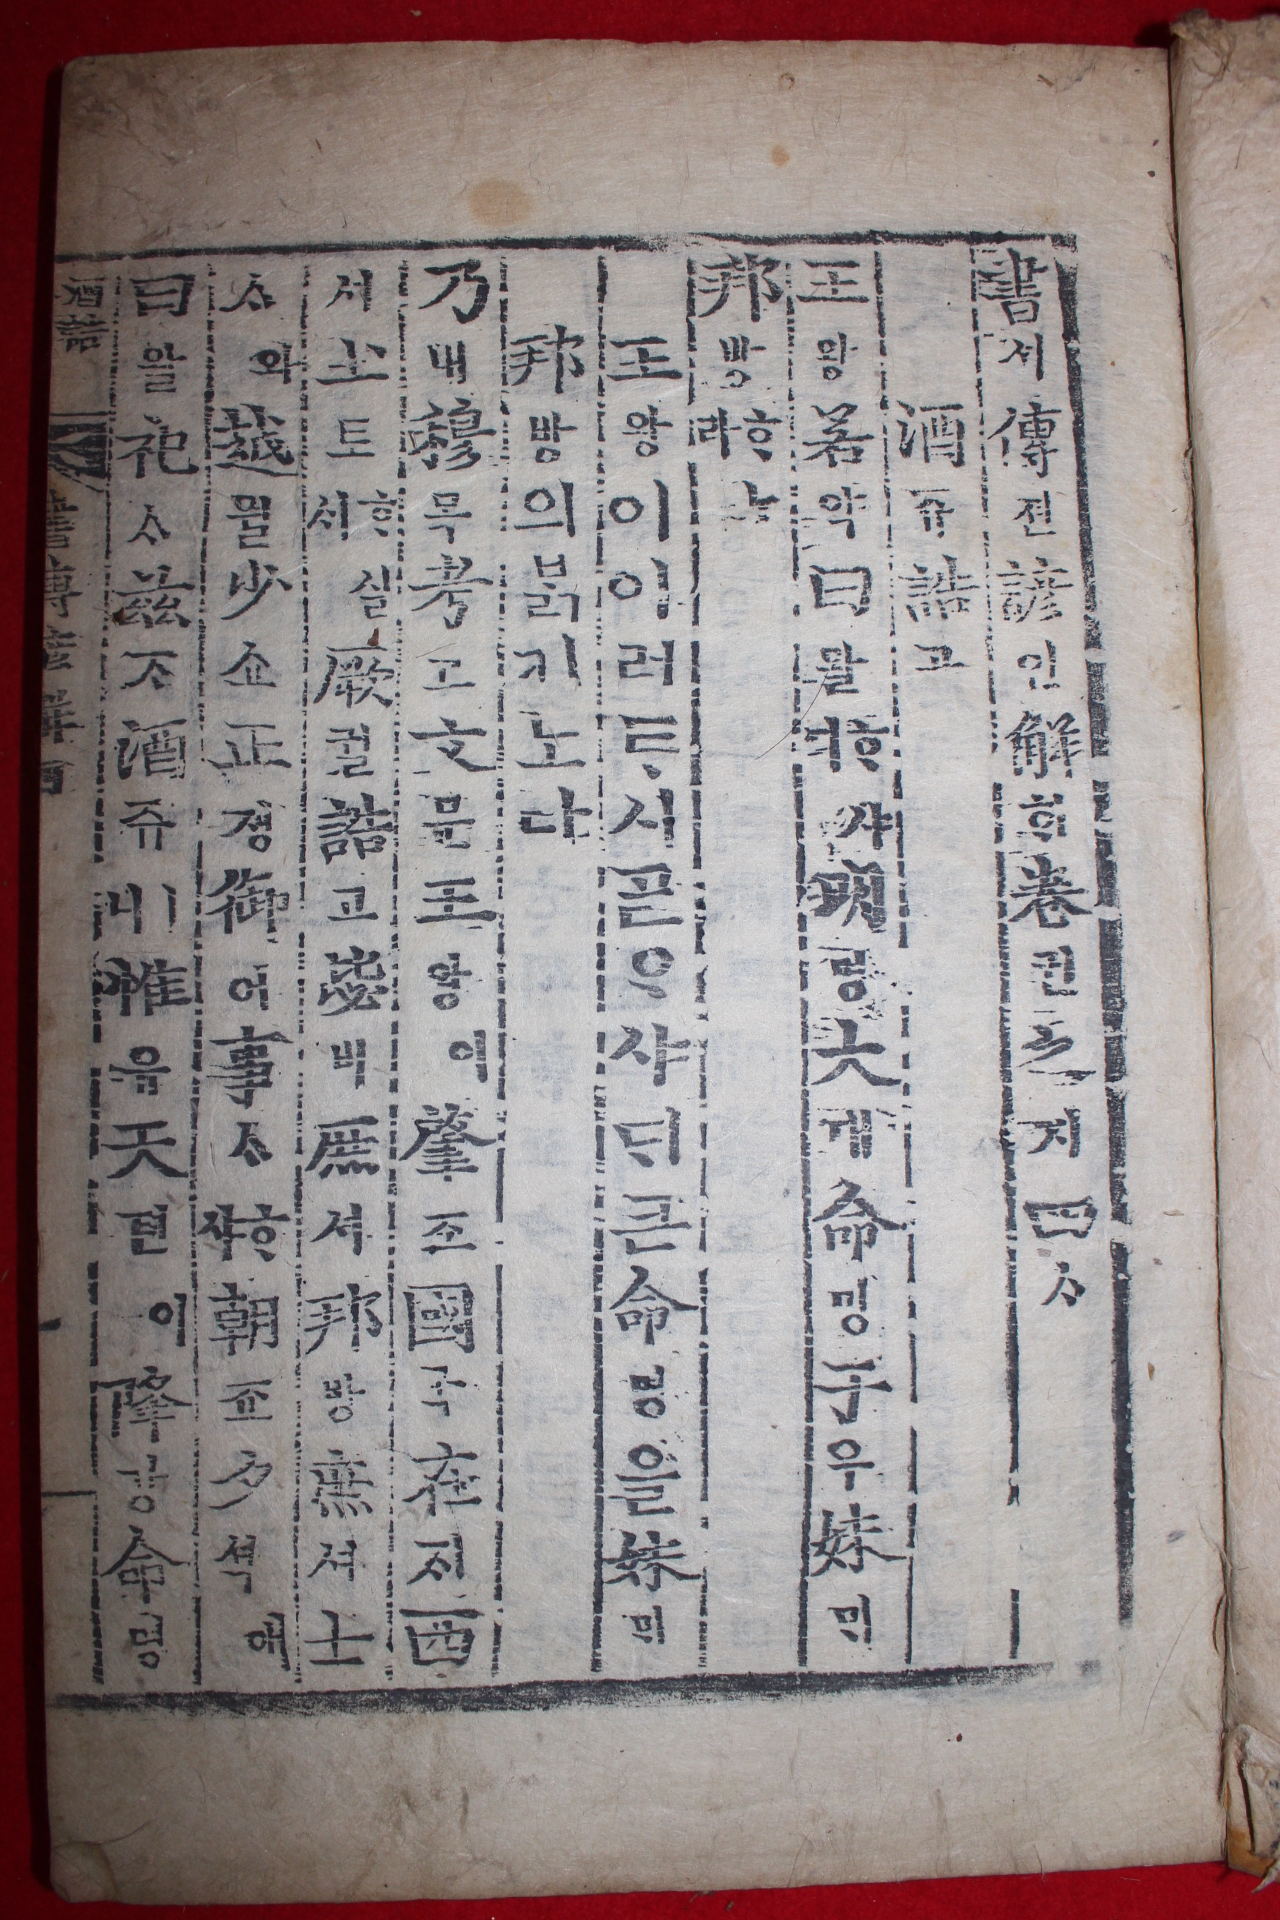 書셔傳젼諺언解ᄒᆡ卷권之지四ᄉᆞ
酒쥬誥고
王왕若약曰왈ᄒᆞ샤ᄃᆡ明명大대命명于우妹ᄆᆡ
邦방ᄒᆞ노라
王왕이이러ᄐᆞ시ᄀᆞᆯᄋᆞ샤ᄃᆡ큰命명을妹ᄆᆡ
邦방의ᄇᆞᆰ키노다
乃내穆목考고文문王왕이肇죠國국在ᄌᆡ西
셔土토ᄒᆞ실ᄉᆡ厥궐誥고毖비庶셔邦방庶셔士
ᄉᆞ와越월少쇼正졍御어事ᄉᆞᄒᆞ샤朝죠夕셕애
曰왈祀ᄉᆞ玆ᄌᆞ酒쥬ㅣ니惟유天텬이降강命명
酒誥
書傳諺解四